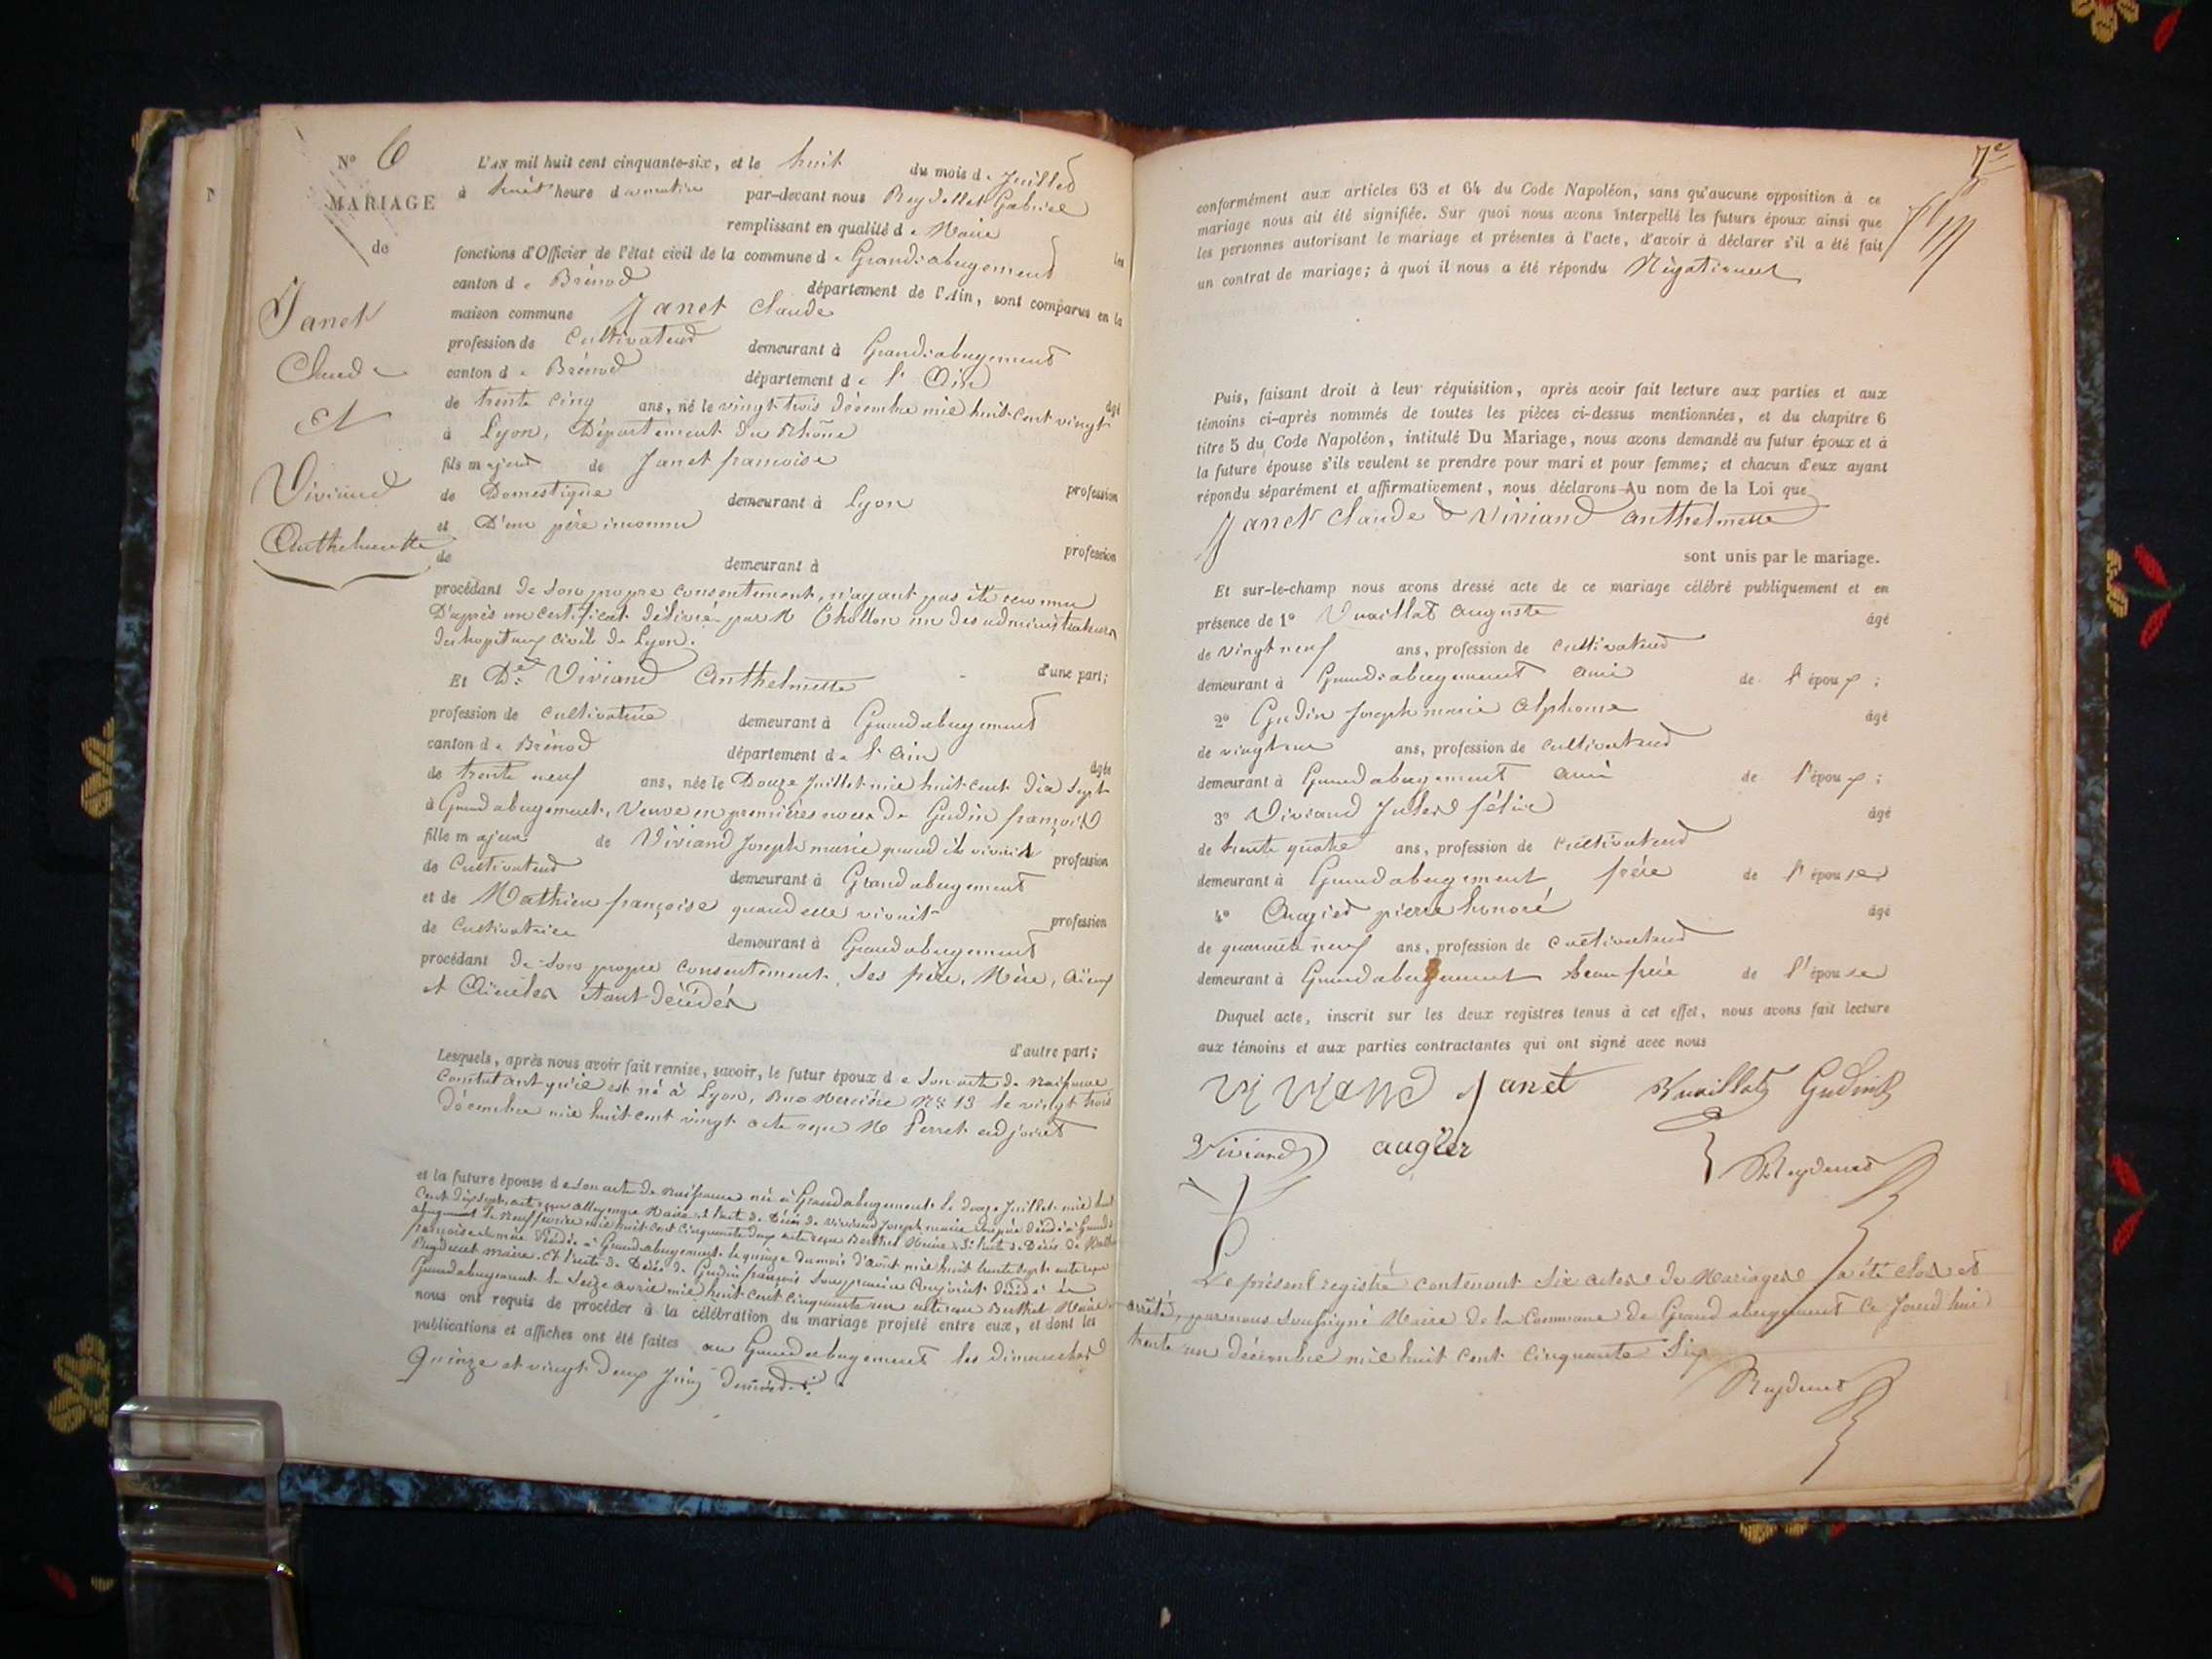 N° 6
MARIAGE
de
Janet
Claude
et
Viviand
Anthelmette
L'AN mil huit cent cinquante-six, et le huit du mois de Juillet
à huit heure du matin par-devant nous Reydellet Gabriel
remplissant en qualité de Maire les
fonctions d'Officier de l'état civil de la commune de Grand-abergement
canton de Brénod département de l'Ain, sont comparus en la
maison commune Janet Claude
profession de Cultivateur demeurant à Grand-abergement
canton de Brénod département de l'Ain âgé
de trente cinq ans, né le vingt trois Décembre mil huit cent vingt
à Lyon, Département du Rhône
fils majeur de Janet francoise profession
de Domestique demeurant à Lyon
et D'un père inconnu profession
de demeurant à
procédant de son propre consentement, n'ayant pas été reconnu
D'après un certificat délivré par M Chollon un des administrateurs
des hopitaux civils de Lyon.
d'une part;
Et Dlle Viviand Anthelmette
profession de Cultivatrice demeurant à Grandabergement
canton de Brénod département de l'Ain âgée
de trente neuf ans, née le Douze Juillet mil huit cent dix sept
à Grandabergement, Veuve en premières noces de Gudin françois
fille majeure de Viviand Joseph marie quand il vivait profession
de Cultivateur demeurant à Grandabergement
et de Mathieu françoise quand elle vivait profession
de Cultivatrice demeurant à Grandabergement
procédant de son propre consentement, ses père, Mère, Aïeux
et Aïeules étant décédés
d'autre part;
Lesquels, après nous avoir fait remise, savoir, le futur époux de son acte de naissance
Constatant qu'il est né à Lyon, Rue Mercière N° 13 le vingt trois
décembre mil huit cent vingt acte reçu M Perret adjoint
et la future épouse de son acte de naissance née à Grandabergement le douze Juillet mil huit
cent dix sept, acte reçu Maire, l'acte de Décès de Viviand Joseph marie son père décédé à Grand-
abergement le neuf février mil huit cent cinquante deux acte reçu Berthet Maire, l'acte de Décès de Mathieu
françoise sa mère Décédée à Grandabergement le quinze du mois d'août mil huit trente sept acte reçu
Reydellet maire. Et l'acte de Décès de Gudin françois son premier Conjoint décédé à
Grandabergement le Seize avril mil huit cent cinquante un acte reçu Berthet Maire
nous ont requis de procéder à la célébration du mariage projeté entre eux, et dont les
publications et affiches ont été faites au Grandabergement les dimanches
quinze et vingt deux Juin derniers.
7e
conformément aux articles 63 et 64 du Code Napoléon, sans qu'aucune opposition à ce
mariage nous ait été signifiée. Sur quoi nous avons interpellé les futurs époux ainsi que
les personnes autorisant le mariage et présentes à l'acte, d'avoir à déclarer s'il a été fait
un contrat de mariage; à quoi il nous a été répondu Négativement
Puis, faisant droit à leur réquisition, après avoir fait lecture aux parties et aux
témoins ci-après nommés de toutes les pièces ci-dessus mentionnées, et du chapitre 6
titre 5 du Code Napoléon, intitulé Du Mariage, nous avons demandé au futur époux et à
la future épouse s'ils veulent se prendre pour mari et pour femme; et chacun d'eux ayant
répondu séparément et affirmativement, nous déclarons Au nom de la Loi que
Janet Claude & Viviand Anthelmette
sont unis par le mariage.
Et sur-le-champ nous avons dressé acte de ce mariage célébré publiquement et en
présence de 1° Vuaillat Auguste âgé
de vingt neuf ans, profession de Cultivateur
demeurant à Grand-abergement ami de l'époux;
2° Gudin Joseph marie Alphonse âgé
de vingt un ans, profession de Cultivateur
demeurant à Grandabergement ami de l'époux;
3° Viviand Jules félix âgé
de trente quatre ans, profession de Cultivateur
demeurant à Grandabergement, frère de l'épouse
4° Augier pierre honoré âgé
de quarante neuf ans, profession de Cultivateur
demeurant à Grandabergement beau frère de l'épouse
Duquel acte, inscrit sur les deux registres tenus à cet effet, nous avons fait lecture
aux témoins et aux parties contractantes qui ont signé avec nous
viviand Janet Vuaillat Gudin
Viviand augier
Reydellet
Le présent registre contenant Six actes de Mariages a été clos et
arrêté, par nous soussigné Maire de la Commune de Grand abergement ce Jourd'hui
trente un décembre mil huit cent cinquante Six
Reydellet